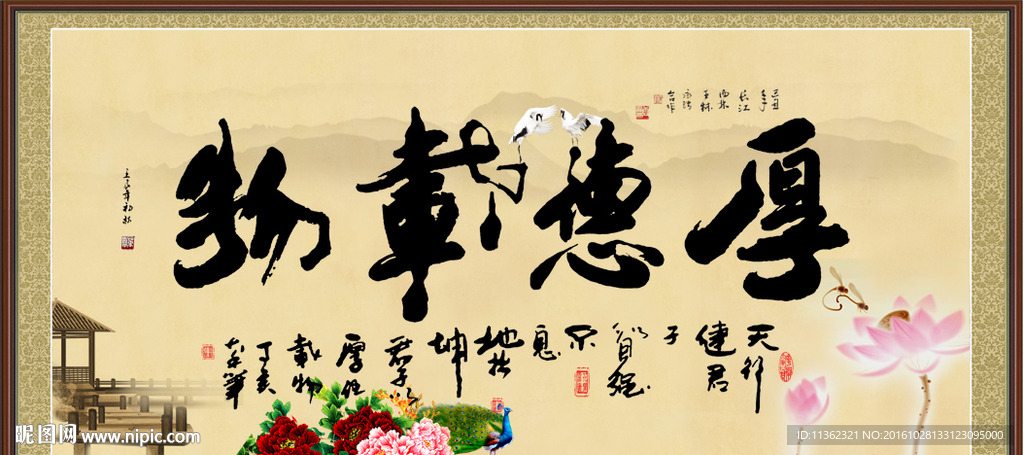 厚德載物
壬辰年初秋
天行
健君
子
以自强
不
息
地势
坤
君子以
厚德
載物
丁亥
昵图网 www.nipic.com
ID:11362321 NO:20161028133123095000